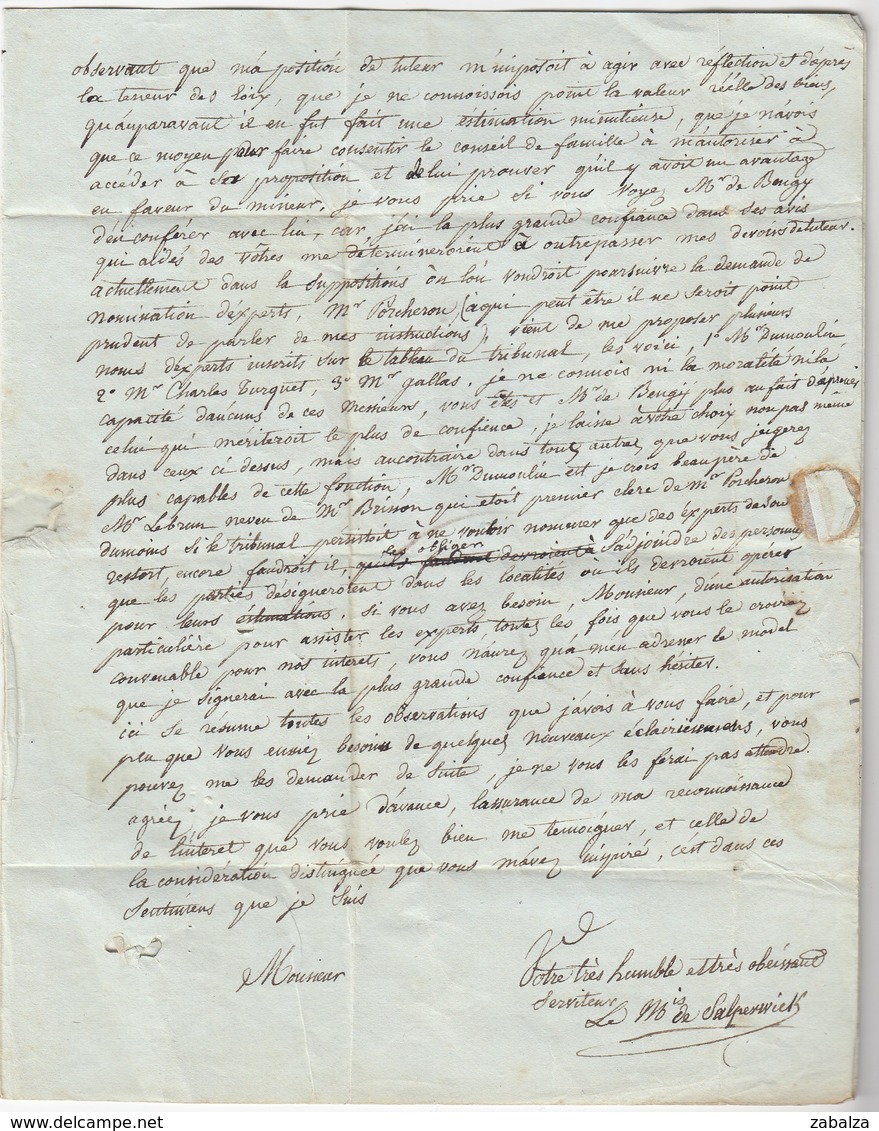 observant que ma position de tuteur m'imposoit à agir avec réflection et d'après
la teneur des loix, que je ne connoissois point la valeur réelle des biens,
qu'auparavant il en fut fait une estimation minutieuse, que je n'avois
que ce moyen pour faire consentir le conseil de famille à m'autoriser à
accéder à sa proposition et de lui prouver qu'il y avoit un avantage
en faveur du mineur. je vous prie si vous voyez Mr de Bengy
d'en conférer avec lui, car j'ai la plus grande confiance dans ses avis
qui aidés des vôtres me détermineroient à outrepasser mes devoirs de tuteur.
actuellement dans la supposition où l'on voudroit poursuivre la demande de
nomination d'experts, Mr Porcheron (a qui peut être il ne seroit point
prudent de parler de mes instructions), vient de me proposer plusieurs
noms d'experts inscrits sur le tableau du tribunal, les voici, 1o Mr Dumoulin
2o Mr Charles Turquet, 3o Mr gallas. je ne connois ni la moralité ni la
capacité d'aucuns de ces Messieurs, vous êtes et Mr de Bengy plus au fait d'après
celui qui mériteroit le plus de confience, je laisse à votre choix non pas même
dans ceux ci dessus, mais au contraire dans tout autres que vous jugerez
plus capables de cette fonction, Mr Dumoulin est je crois beaupère de
Mr Lebrun neveu de Mr Brisson qui etoit premier clerc de Mr Porcheron
Dumoins si le tribunal persistoit à ne vouloir nommer que des experts de son
les obliger
ressort, encore faudroit il, qu'ils devroient à s'adjoindre des personnes
que les parties désigneroient dans les localités où ils devroient opérer
pour leurs estimations, si vous avez besoin, Monsieur, d'une autorisation
particulière pour assister les experts, toutes les fois que vous le croirez
convenable pour nos interets, vous n'aurez qu'à m'en adresser le model
que je signerai avec la plus grande confiance et sans hésiter.
ici se résume toutes les observations que j'avois à vous faire, et pour
peu que vous eussiez besoin de quelques nouveaux éclaircissemens, vous
pouvez me les demander de suite, je ne vous les ferai pas attendre.
agréez je vous prie d'avance, l'assurance de ma reconnoissance
de l'interet que vous voulez bien me temoigner, et celle de
la considération distinguée que vous m'avez inspiré, c'est dans ces
sentimens que je suis
Monsieur
Votre très humble et très obéissant
serviteur
Le Mis de Salperwick
zabalza